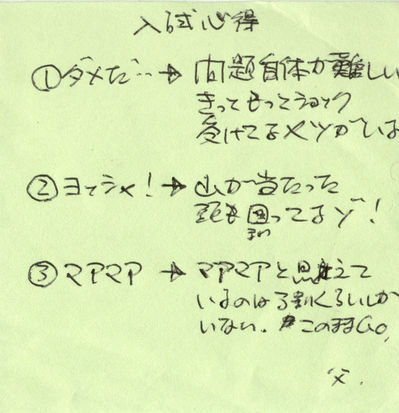 入試心得
①ダメだ… → 問題自体が難しい
きっともっとショック
受けてるヤツがいる
②ヨッシャ! → 山が当たった
頭も回ってるゾ!
まわ
③マアマア → マアマアと思えて
いるのは3割くらいしか
いない。このままGO,
父.